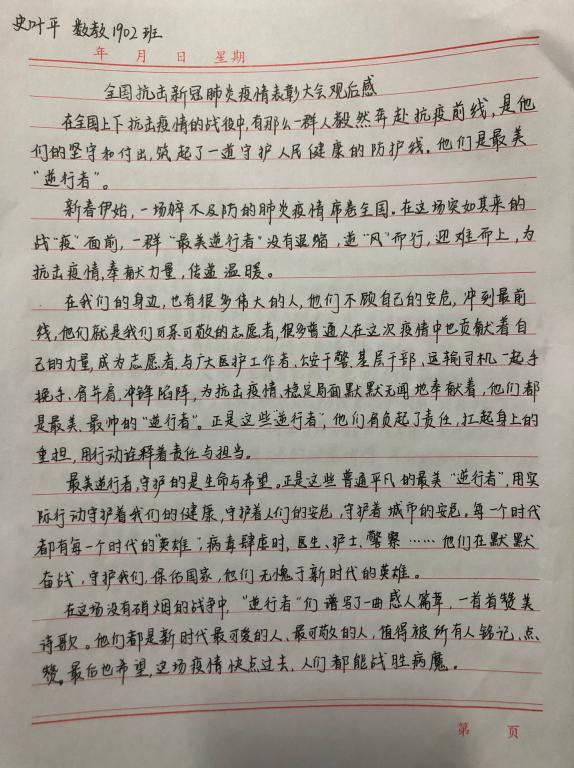 史叶平 数教1902班
年 月 日 星期
全国抗击新冠肺炎疫情表彰大会观后感
在全国上下抗击疫情的战役中,有那么一群人毅然奔赴抗疫前线,是他
们的坚守和付出,筑起了一道守护人民健康的防护线。他们是最美
“逆行者”。
新春伊始,一场猝不及防的肺炎疫情席卷全国。在这场突如其来的
战“疫”面前,一群“最美逆行者”没有退缩,逆“风”而行,迎难而上,为
抗击疫情,奉献力量,传递温暖。
在我们的身边,也有很多伟大的人,他们不顾自己的安危,冲到最前
线,他们就是我们可亲可敬的志愿者,很多普通人在这次疫情中也贡献着自
己的力量,成为志愿者,与广大医护工作者、公安干警、基层干部、运输司机一起手
挽手、肩并肩,冲锋陷阵,为抗击疫情,稳定局面默默无闻地奉献着,他们都
是最美、最帅的“逆行者”。正是这些“逆行者”,他们肩负起了责任,扛起身上的
重担,用行动诠释着责任与担当。
最美逆行者,守护的是生命与希望。正是这些普通平凡的最美“逆行者”,用实
际行动守护着我们的健康,守护着人们的安危,守护着城市的安危。每一个时代
都有每一个时代的“英雄”,病毒肆虐时,医生、护士、警察……他们在默默
奋战,守护我们,保伤国家,他们无愧于新时代的英雄。
在这场没有硝烟的战争中,“逆行者”们谱写了一曲感人篇章,一首首赞美
诗歌。他们都是新时代最可爱的人、最可敬的人,值得被所有人铭记、点
赞。最后也希望,这场疫情快点过去,人们都能战胜病魔。
第 页